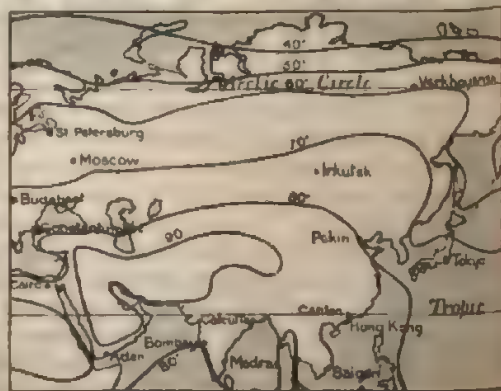 40°
50°
Arctic 60° Circle
Verkhoyansk
St Petersburg
70°
Moscow
Irkutsk
Budapest
80°
Constantinople
90
Pekin
Tokyo
Cairo
Tropic
Calcutta
Canton
Hong Kong
Bombay
Aden
80°
Madras
Saigon